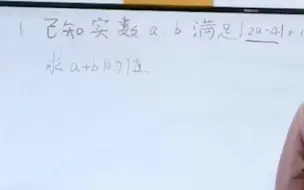 1 已知实数a b满足|2a-4|+
求a+b的值